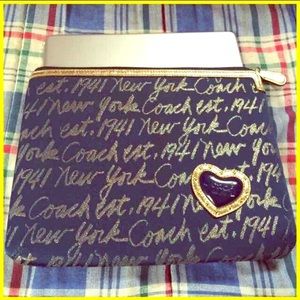 est. 1941 New York Coach
41 New York Coach est. 1941
Coach est. 1941 New York
York Coach est. 1941 New
1941 New York Coach
New York Coach est. 1941
York Coach est. 1941
1941 New York
New York Coach est. 1941